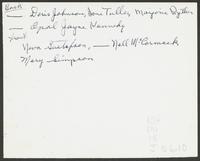 Back
— Doris Johnson, Toni Tuller, Marjorie
— Opal Jayne Kennedy
Front
Neva Gustafson, — Nell McCormack
Mary Simpson